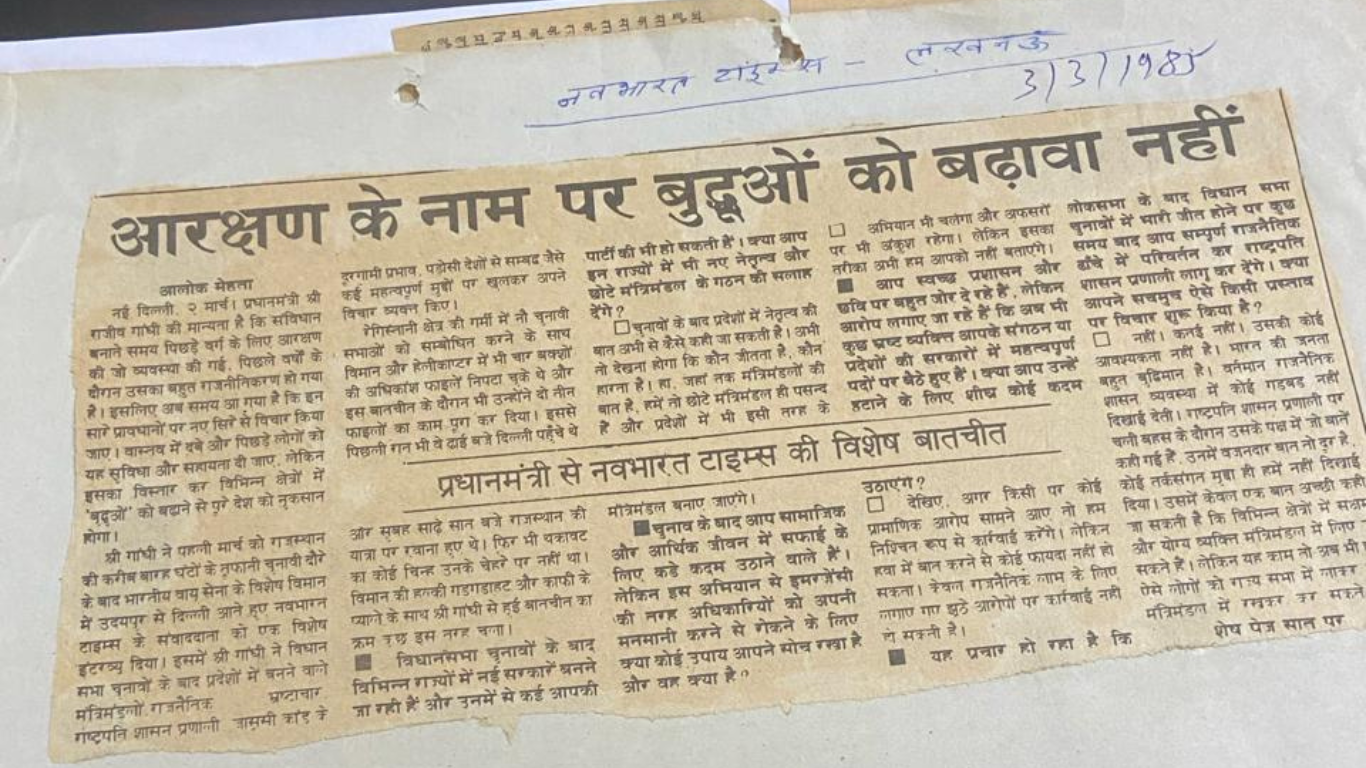 नवभारत टाइम्स - लखनऊ
3/3/1985
आरक्षण के नाम पर बुद्धूओं को बढ़ावा नहीं
आलोक मेहता
नई दिल्ली, २ मार्च। प्रधानमंत्री श्री
राजीव गांधी की मान्यता है कि संविधान
बनाते समय पिछड़े वर्ग के लिए आरक्षण
की जो व्यवस्था की गई, पिछले वर्षों के
दौरान उसका बहुत राजनीतिकरण हो गया
है। इसलिए अब समय आ गया है कि इन
सारे प्रावधानों पर नए सिरे से विचार किया
जाए। वास्तव में दबे और पिछड़े लोगों को
यह सुविधा और सहायता दी जाए, लेकिन
इसका विस्तार कर विभिन्न क्षेत्रों में
'बुद्धूओं' को बढ़ाने से पूरे देश को नुकसान
होगा।
श्री गांधी ने पहली मार्च को राजस्थान
की करीब बारह घंटों के तूफानी चुनावी दौरे
के बाद भारतीय वायु सेना के विशेष विमान
में उदयपुर से दिल्ली आते हुए नवभारत
टाइम्स के संवाददाता को एक विशेष
इंटरव्यू दिया। इसमें श्री गांधी ने विधान
सभा चुनावों के बाद प्रदेशों में बनने वाले
मंत्रिमंडलों, राजनैतिक भ्रष्टाचार,
राष्ट्रपति शासन प्रणाली जासूसी कांड के
दूरगामी प्रभाव, पड़ोसी देशों से सम्बद्ध जैसे
कई महत्वपूर्ण मुद्दों पर खुलकर अपने
विचार व्यक्त किए।
रेगिस्तानी क्षेत्र की गर्मी में नौ चुनावी
सभाओं को सम्बोधित करने के साथ
विमान और हेलीकाप्टर में भी चार बक्सों
की अधिकांश फाइलें निपटा चुके थे और
इस बातचीत के दौरान भी उन्होंने दो तीन
फाइलों का काम पूरा कर दिया। इससे
पिछली रात भी वे ढाई बजे दिल्ली पहुँचे थे
प्रधानमंत्री से नवभारत टाइम्स की विशेष बातचीत
और सुबह साढ़े सात बजे राजस्थान की
यात्रा पर रवाना हुए थे। फिर भी थकावट
का कोई चिन्ह उनके चेहरे पर नहीं था।
विमान की हल्की गड़गड़ाहट और काफी के
प्याले के साथ श्री गांधी से हुई बातचीत का
क्रम कुछ इस तरह चला।
■ विधानसभा चुनावों के बाद
विभिन्न राज्यों में नई सरकारें बनने
जा रही हैं और उनमें से कई आपकी
पार्टी की भी हो सकती हैं। क्या आप
इन राज्यों में भी नए नेतृत्व और
छोटे मंत्रिमंडल के गठन की सलाह
देंगे?
□ चुनावों के बाद प्रदेशों में नेतृत्व की
बात अभी से कैसे कही जा सकती है। अभी
तो देखना होगा कि कौन जीतता है, कौन
हारता है। हां, जहां तक मंत्रिमंडलों की
बात है, हमें तो छोटे मंत्रिमंडल ही पसन्द
हैं और प्रदेशों में भी इसी तरह के
मंत्रिमंडल बनाए जाएंगे।
■ चुनाव के बाद आप सामाजिक
और आर्थिक जीवन में सफाई के
लिए कड़े कदम उठाने वाले हैं।
लेकिन इस अभियान से इमरजेंसी
की तरह अधिकारियों को अपनी
मनमानी करने से रोकने के लिए
क्या कोई उपाय आपने सोच रखा है
और वह क्या है?
□ अभियान भी चलेगा और अफसरों
पर भी अंकुश रहेगा। लेकिन इसका
तरीका अभी हम आपको नहीं बताएंगे।
■ आप स्वच्छ प्रशासन और
छवि पर बहुत जोर दे रहे हैं, लेकिन
आरोप लगाए जा रहे हैं कि अब भी
कुछ भ्रष्ट व्यक्ति आपके संगठन या
प्रदेशों की सरकारों में महत्वपूर्ण
पदों पर बैठे हुए हैं। क्या आप उन्हें
हटाने के लिए शीघ्र कोई कदम
उठाएंगे?
□ देखिए, अगर किसी पर कोई
प्रामाणिक आरोप सामने आए तो हम
निश्चित रूप से कार्रवाई करेंगे। लेकिन
हवा में बात करने से कोई फायदा नहीं हो
सकता। केवल राजनैतिक लाभ के लिए
लगाए गए झूठे आरोपों पर कार्रवाई नहीं
हो सकती है।
■ यह प्रचार हो रहा है कि
लोकसभा के बाद विधान सभा
चुनावों में भारी जीत होने पर कुछ
समय बाद आप सम्पूर्ण राजनैतिक
ढाँचे में परिवर्तन कर राष्ट्रपति
शासन प्रणाली लागू कर देंगे। क्या
आपने सचमुच ऐसे किसी प्रस्ताव
पर विचार शुरू किया है?
□ नहीं। कतई नहीं। उसकी कोई
आवश्यकता नहीं है। भारत की जनता
बहुत बुद्धिमान है। वर्तमान राजनैतिक
शासन व्यवस्था में कोई गड़बड़ नहीं
दिखाई देती। राष्ट्रपति शासन प्रणाली पर
चली बहस के दौरान उसके पक्ष में जो बातें
कही गई हैं, उनमें वजनदार बात तो दूर है,
कोई तर्कसंगत मुद्दा ही हमें नहीं दिखाई
दिया। उसमें केवल एक बात अच्छी कही
जा सकती है कि विभिन्न क्षेत्रों में
और योग्य व्यक्ति मंत्रिमंडल में लिए
सकते हैं। लेकिन यह काम तो अब भी
ऐसे लोगों को राज्य सभा में लाकर
मंत्रिमंडल में रखकर कर सकते
शेष पेज सात पर